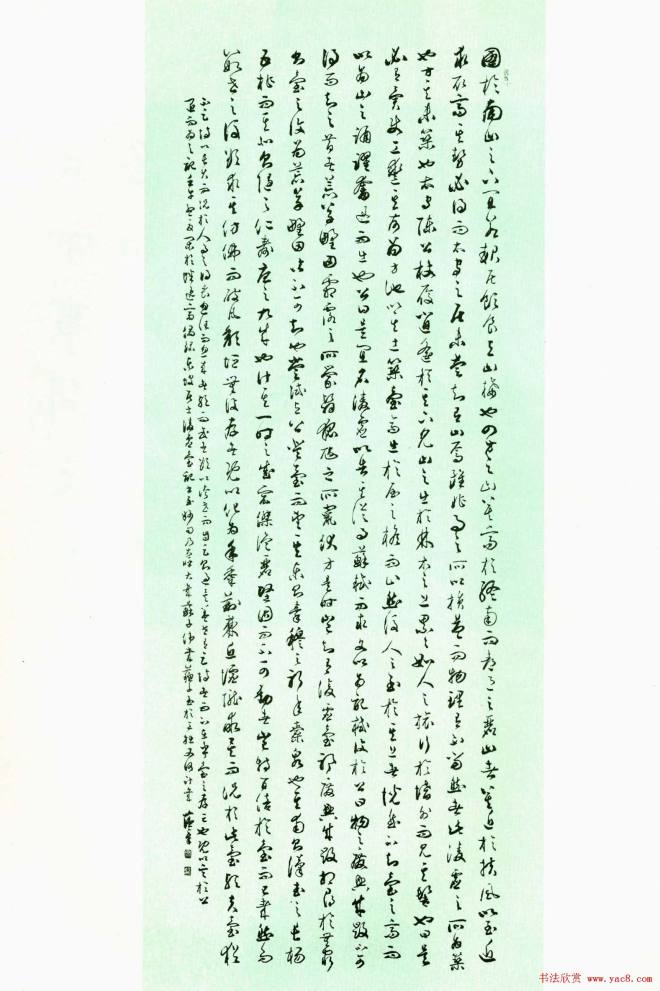 國於南山之下宜若起居飲食與山接也四方之山莫高於終南而都邑之麗山者莫近於扶風以至近
求最高其勢必得而太守之居未嘗知有山焉雖非事之所以損益而物理有不當然者此凌虛之所為築
也方其未築也太守陳公杖履逍遙於其下見山之出於林木之上者累累如人之旅行於牆外而見其髻也曰是
必有異使工鑿其前為方池以其土築臺高出於屋之檐而止然後人之至於其上者恍然不知臺之高而
以為山之踴躍奮迅而出也公曰是宜名凌虛以告其從事蘇軾而求文以為記軾復於公曰物之廢興成毀不可
得而知之昔者荒草野田霜露之所蒙翳狐虺之所竄伏方是時豈知有凌虛臺耶廢興成毀相尋於無窮
則臺之復為荒草野田皆不可知也嘗試與公登臺而望其東則秦穆之祈年橐泉也其南則漢武之長楊
五柞而其北則隋之仁壽唐之九成也計其一時之盛宏傑詭麗堅固而不可動者豈特百倍於臺而已哉然而
數世之後欲求其彷彿而破瓦頹垣無復存者既以化為禾黍荊棘丘墟隴畝矣而況於此臺歟夫臺猶
不足恃以長久而況於人事之得喪忽往而忽來者歟而或者欲以夸世而自足則過矣蓋世有足恃者而不在乎臺之存亡也既以言於公
退而為之記
书法欣赏 www.yac8.com